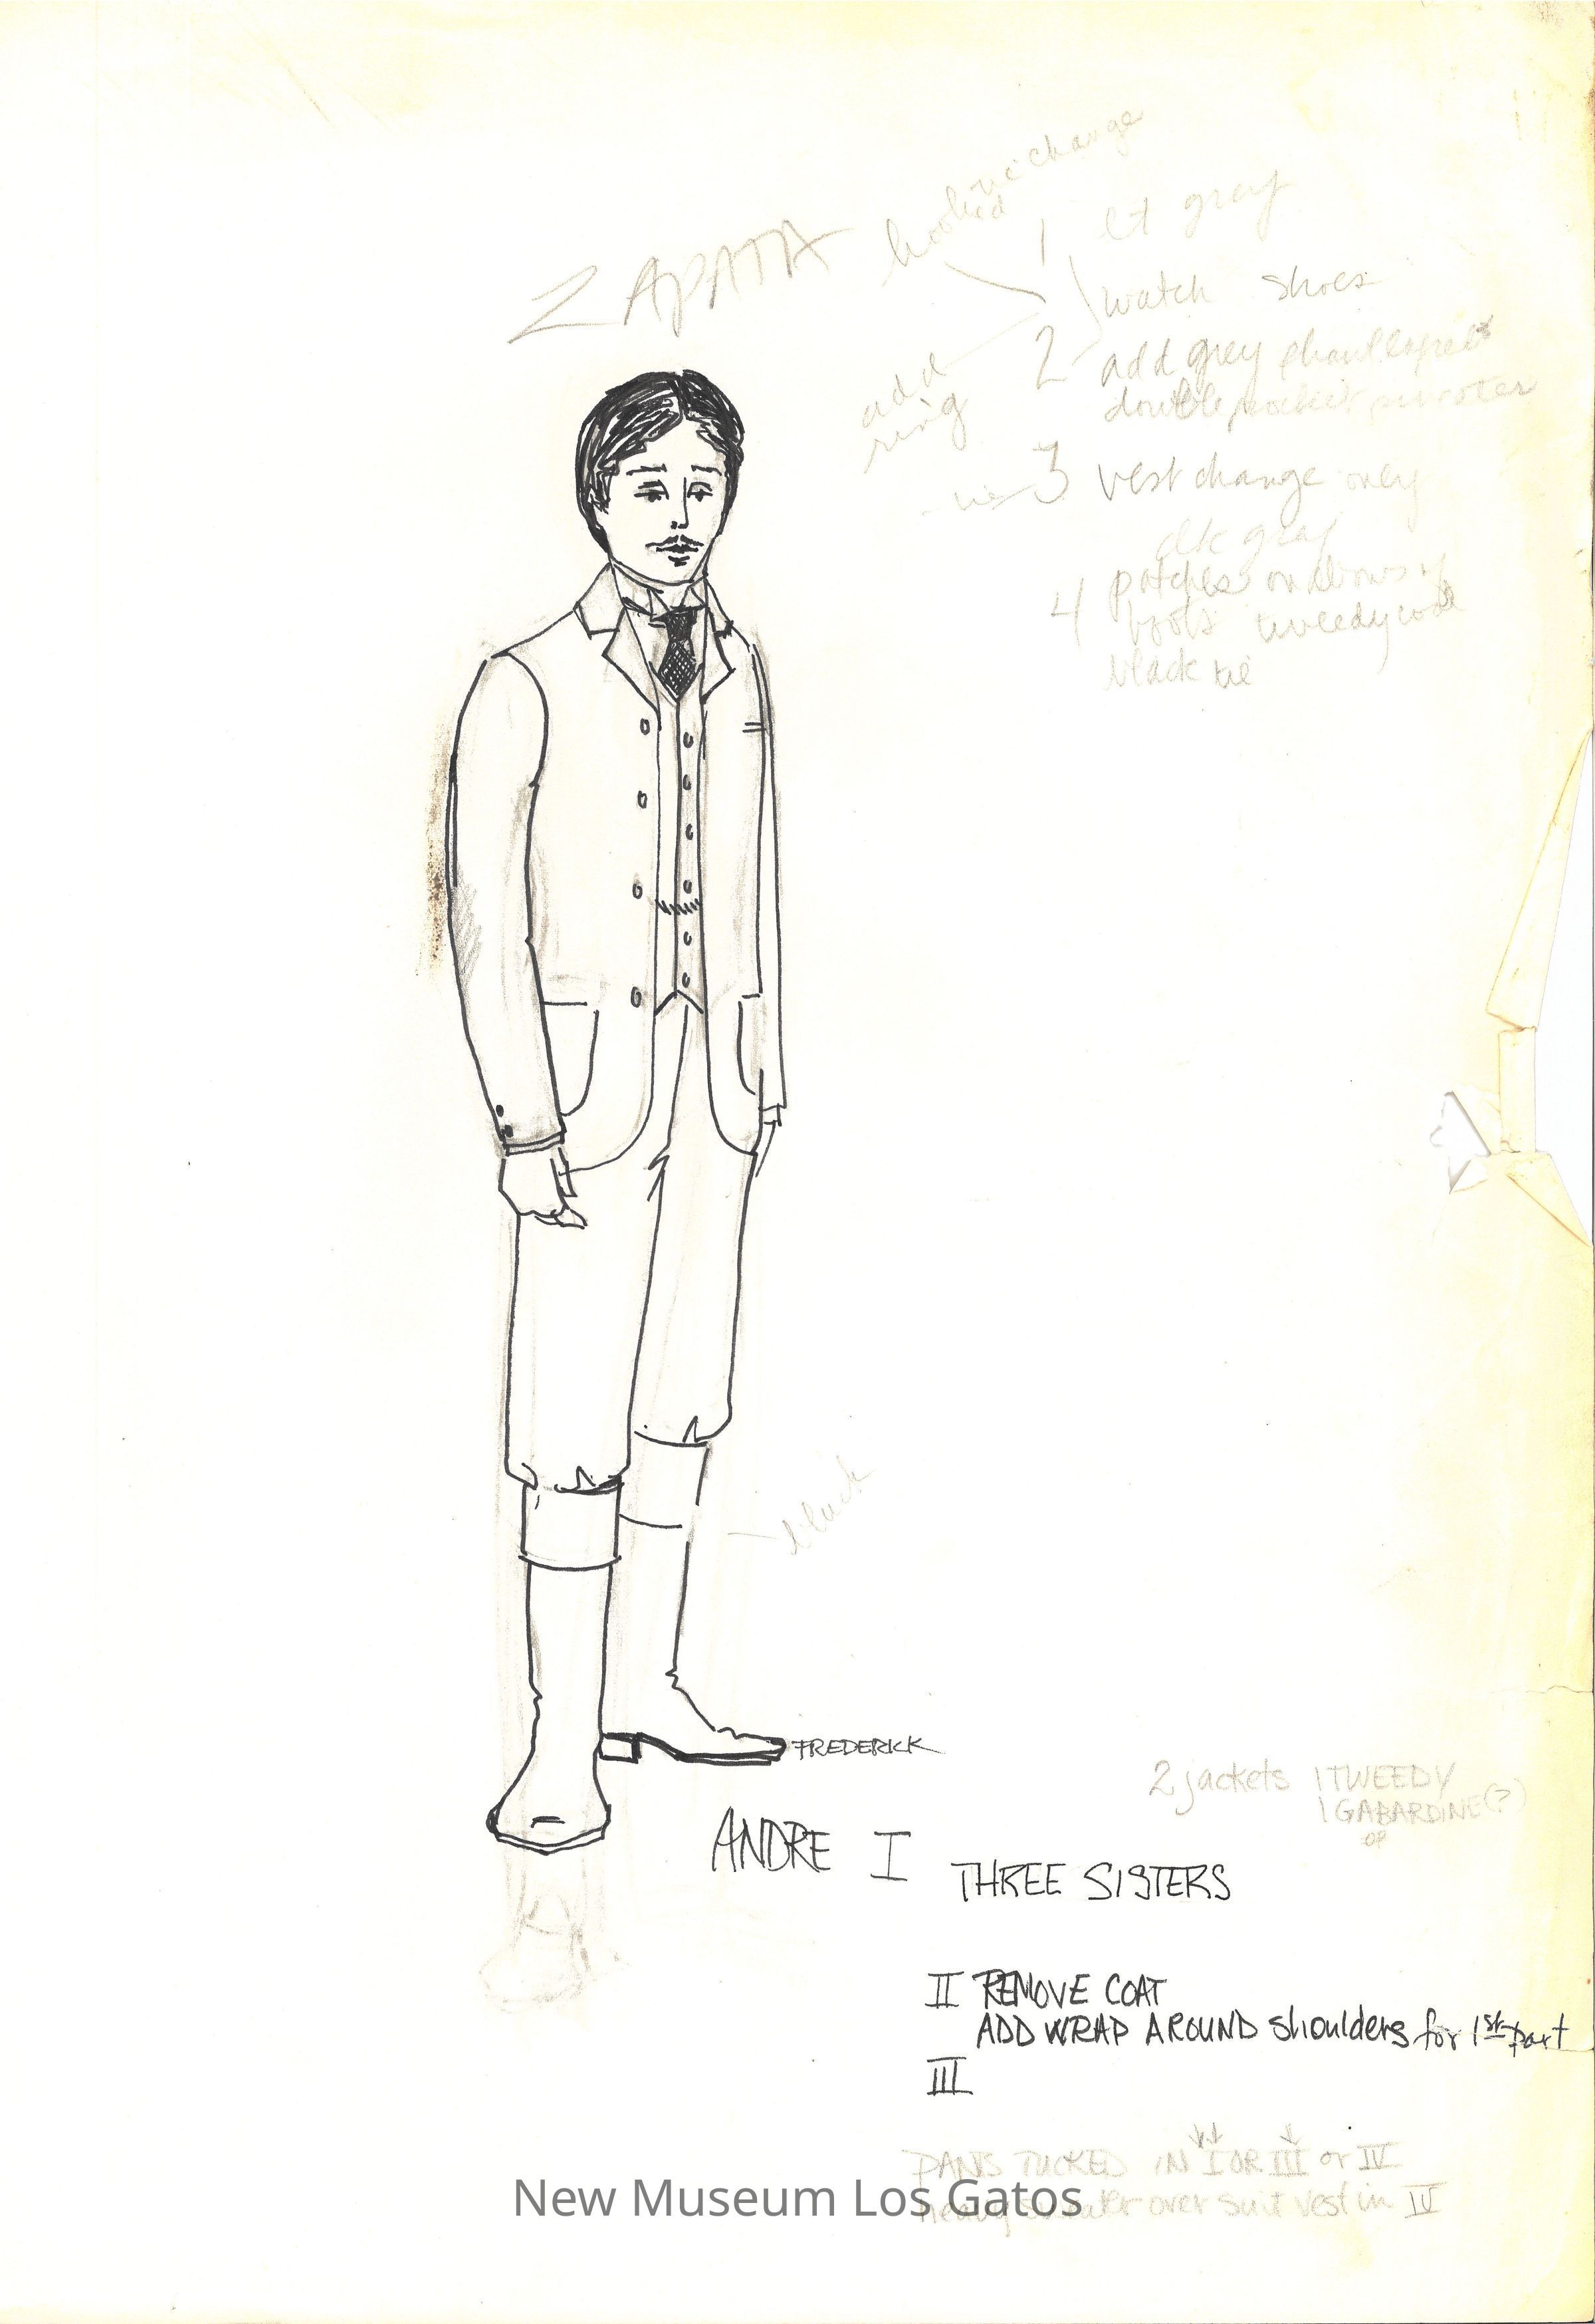 ZAPATA
change
1 lt grey
watch shoes
add
ring
2 add grey
double pocket
3 vest change only
dk gray
4 patches on elbows
boots tweedy
black tie
black
FREDERICK
2 jackets 1 TWEEDY
1 GABARDINE (?)
OR
ANDRE I
THREE SISTERS
II REMOVE COAT
ADD WRAP AROUND shoulders for 1st part
III
PANTS TUCKED IN I OR III or IV
heavy sweater over suit vest in IV
New Museum Los Gatos